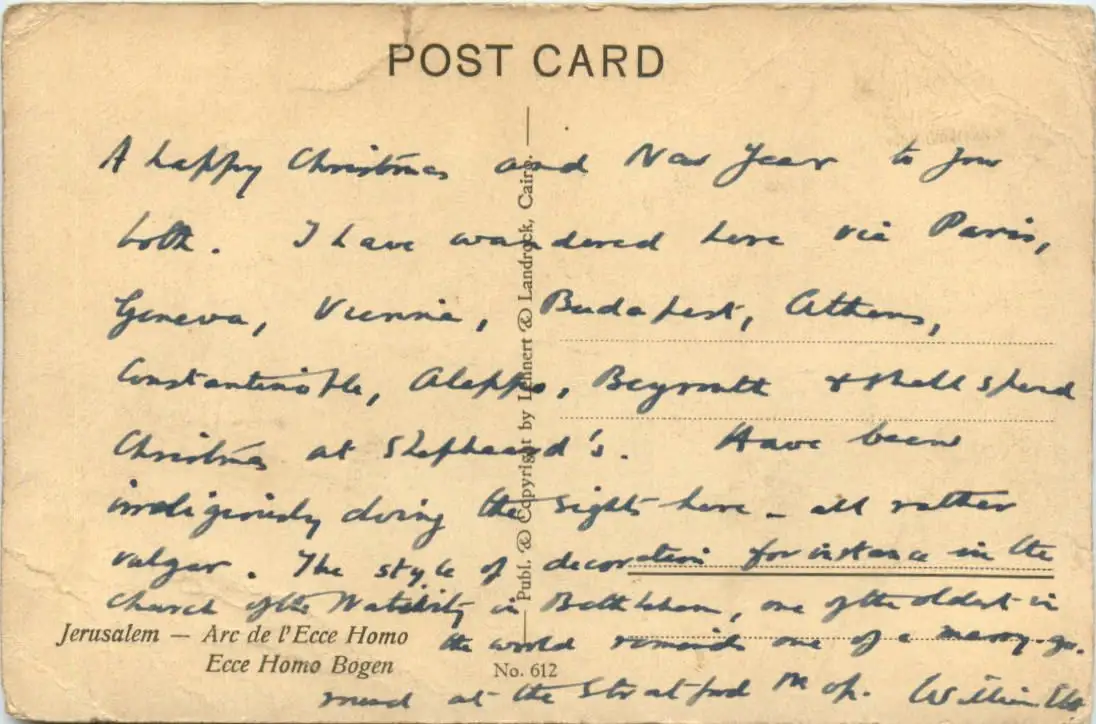 POST CARD
A happy Christmas and New Year to you
both. I have wandered here via Paris,
Geneva, Vienna, Budapest, Athens,
Constantinople, Aleppo, Beyrouth & shall spend
Christmas at Shepheard's. Have been
irreligiously doing the sights here - all rather
vulgar. The style of decoration for instance in the
Church of the Nativity in Bethlehem, one of the oldest in
the world reminds one of a merry-go-
round at the Stratford Mop. William
Publ. & Copyright by Lehnert & Landrock, Cairo.
Jerusalem — Arc de l'Ecce Homo
Ecce Homo Bogen
No. 612